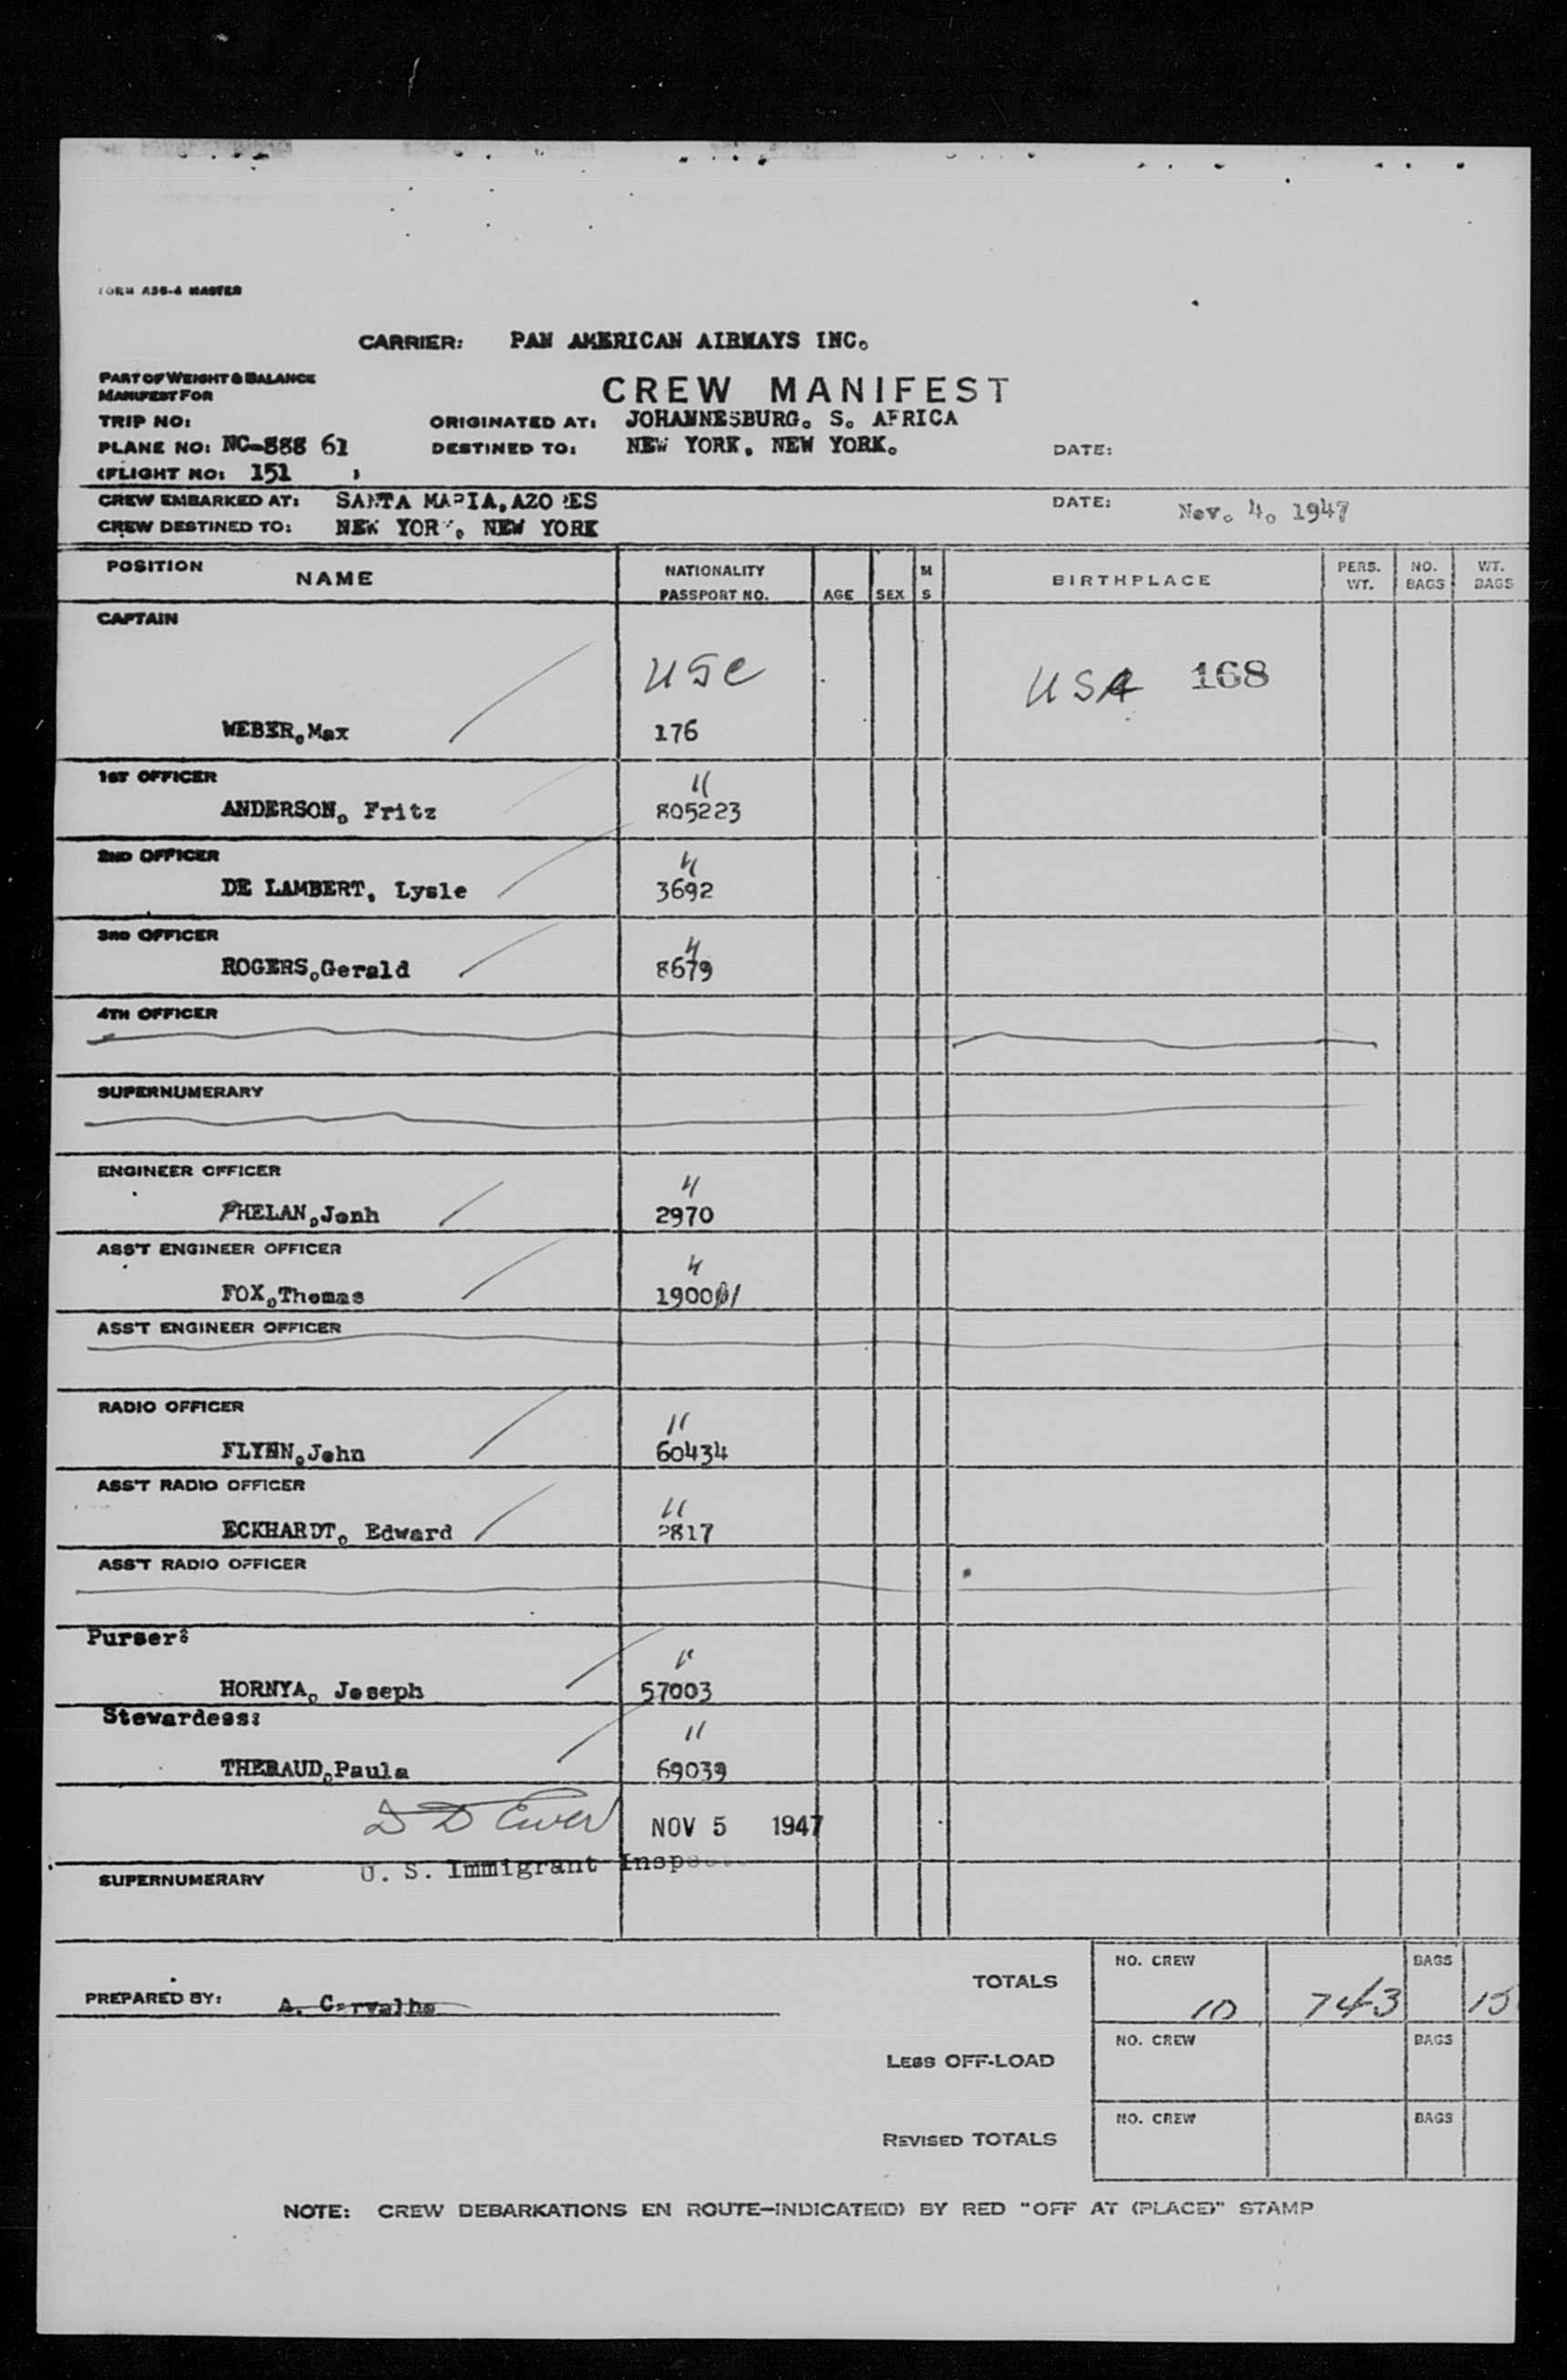 FORM ASG-4 MASTER
CARRIER: PAN AMERICAN AIRWAYS INC.
PART OF WEIGHT & BALANCE
MANIFEST FOR
CREW MANIFEST
TRIP NO: ORIGINATED AT: JOHANNESBURG. S. AFRICA
PLANE NO: NC-888 61 DESTINED TO: NEW YORK. NEW YORK. DATE:
(FLIGHT NO: 151 )
CREW EMBARKED AT: SANTA MARIA, AZORES DATE: Nov. 4. 1947
CREW DESTINED TO: NEW YORK. NEW YORK
POSITION NAME NATIONALITY PASSPORT NO. AGE SEX M S BIRTHPLACE PERS. WT. NO. BAGS WT. BAGS
CAPTAIN
USC USA 168
WEBER.Max 176
1ST OFFICER "
ANDERSON. Fritz 805223
2ND OFFICER "
DE LAMBERT. Lysle 3692
3RD OFFICER "
ROGERS.Gerald 8679
4TH OFFICER
SUPERNUMERARY
ENGINEER OFFICER "
PHELAN.Jonh 2970
ASS'T ENGINEER OFFICER "
FOX.Thomas 19001
ASS'T ENGINEER OFFICER
RADIO OFFICER "
FLYNN.John 60434
ASS'T RADIO OFFICER "
ECKHARDT. Edward 2817
ASS'T RADIO OFFICER
Purser: "
HORNYA. Joseph 57003
Stewardess: "
THERAUD.Paula 69039
NOV 5 1947
U. S. Immigrant Inspector
SUPERNUMERARY
TOTALS NO. CREW 10 743 BAGS 15
PREPARED BY: A. Carvalho
LESS OFF-LOAD NO. CREW BAGS
REVISED TOTALS NO. CREW BAGS
NOTE: CREW DEBARKATIONS EN ROUTE-INDICATE(D) BY RED "OFF AT (PLACE)" STAMP